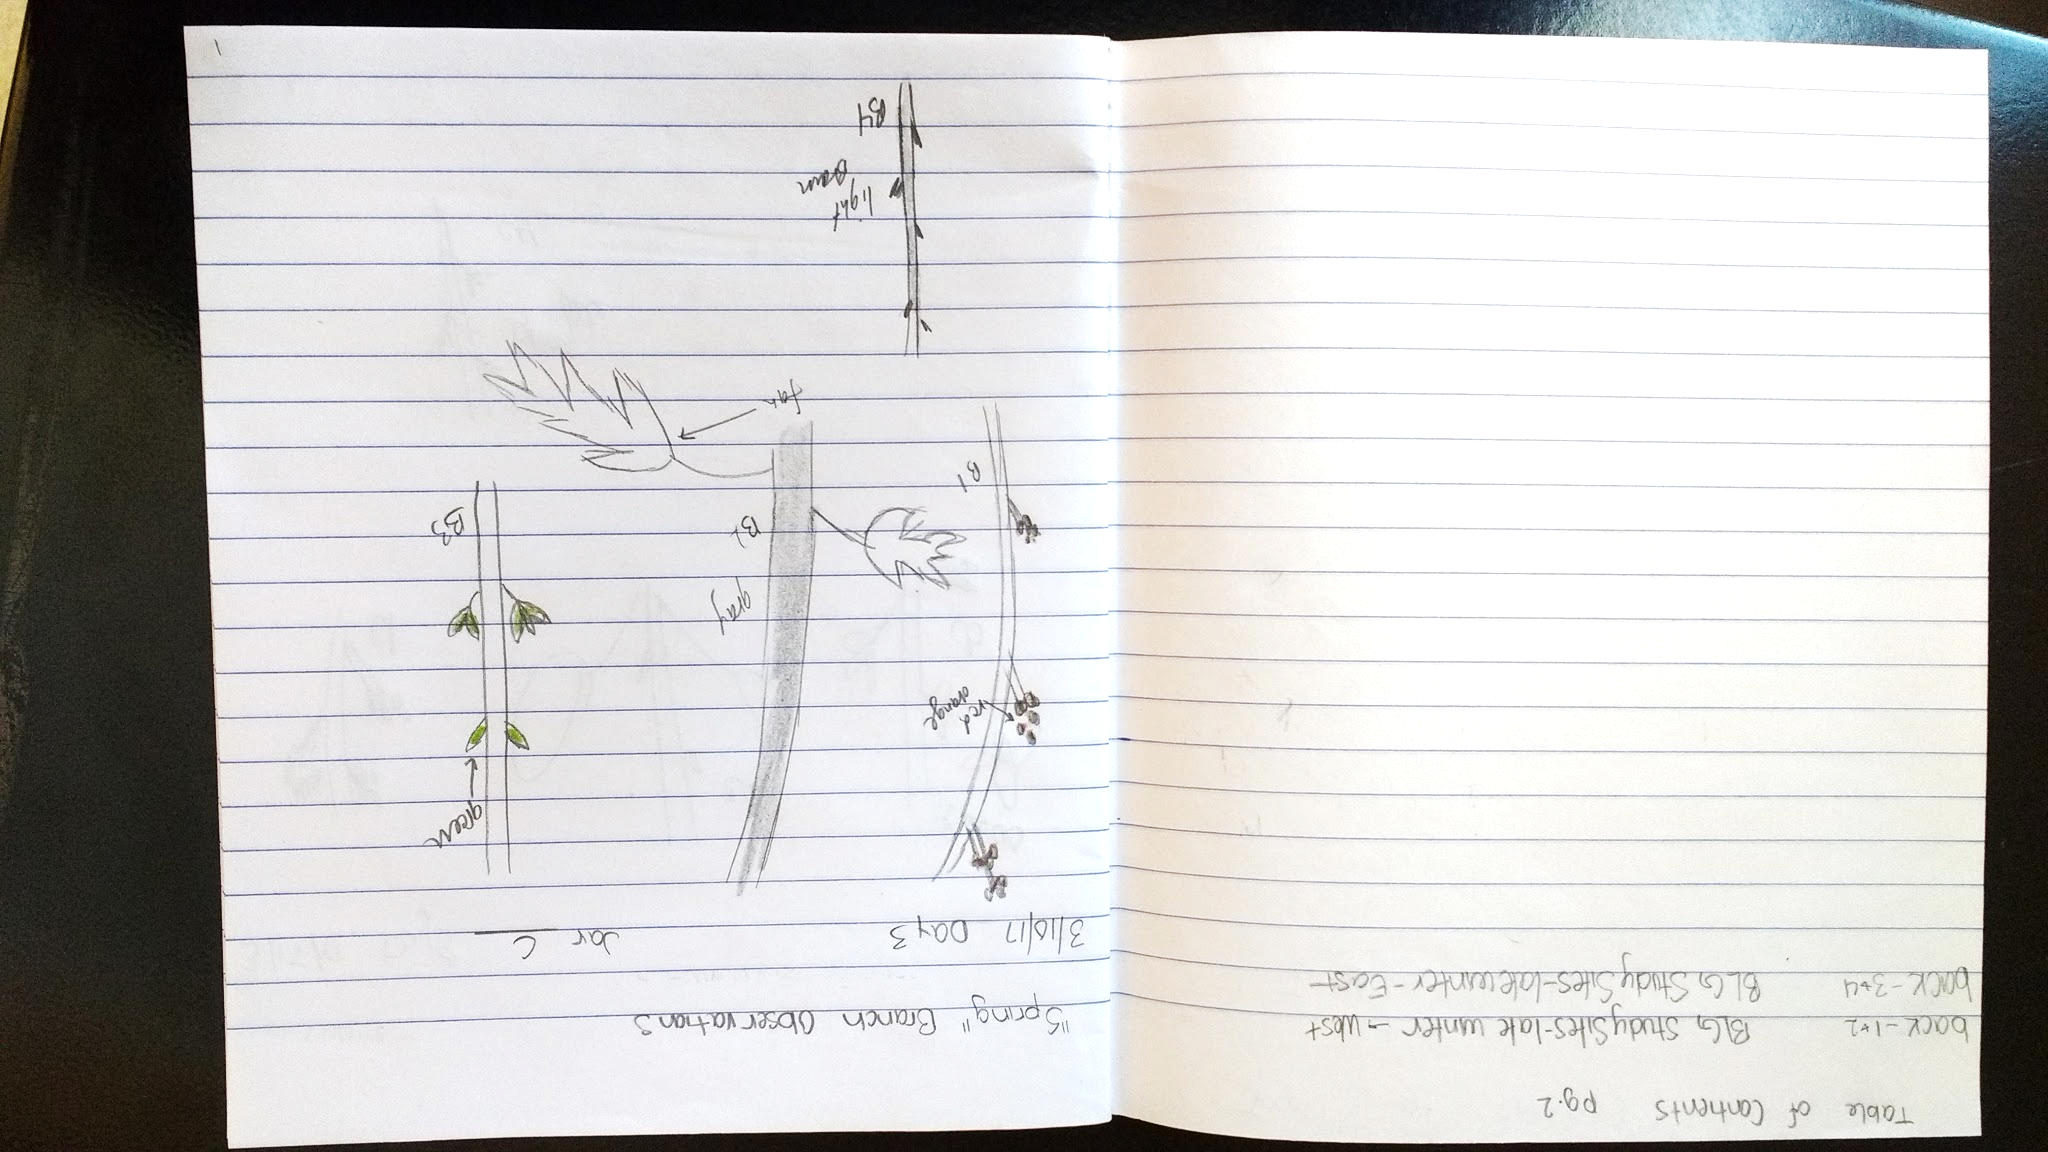 Table of Contents pg. 2
back - 1+2 BLG Study Sites - late winter - West
back - 3+4 BLG Study Sites - late winter - East
"Spring" Branch Observations
3/10/17 Day 3 Jar C
green
red
orange
gray
B1
B2
B3
tan
light
brown
B4
1